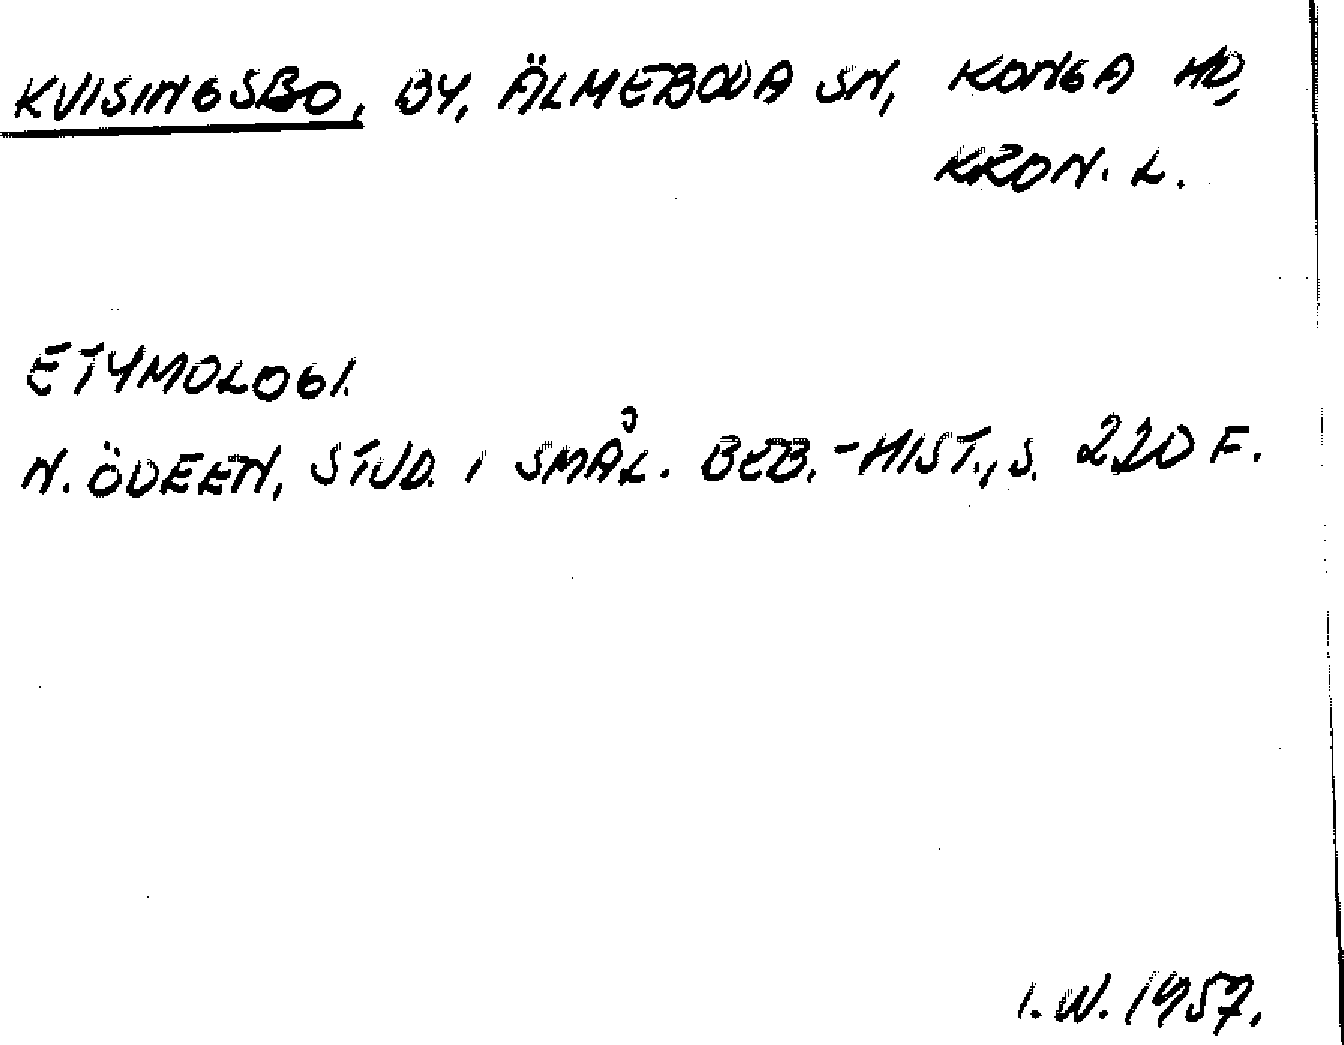 KVISINGSBO, BY, ÄLMEBODA SN, KONGA HD,
KRON. L.
ETYMOLOGI.
N. ÖDEEN, STUD. I SMÅL. BEB.-HIST., S. 220 F.
I.W. 1957.